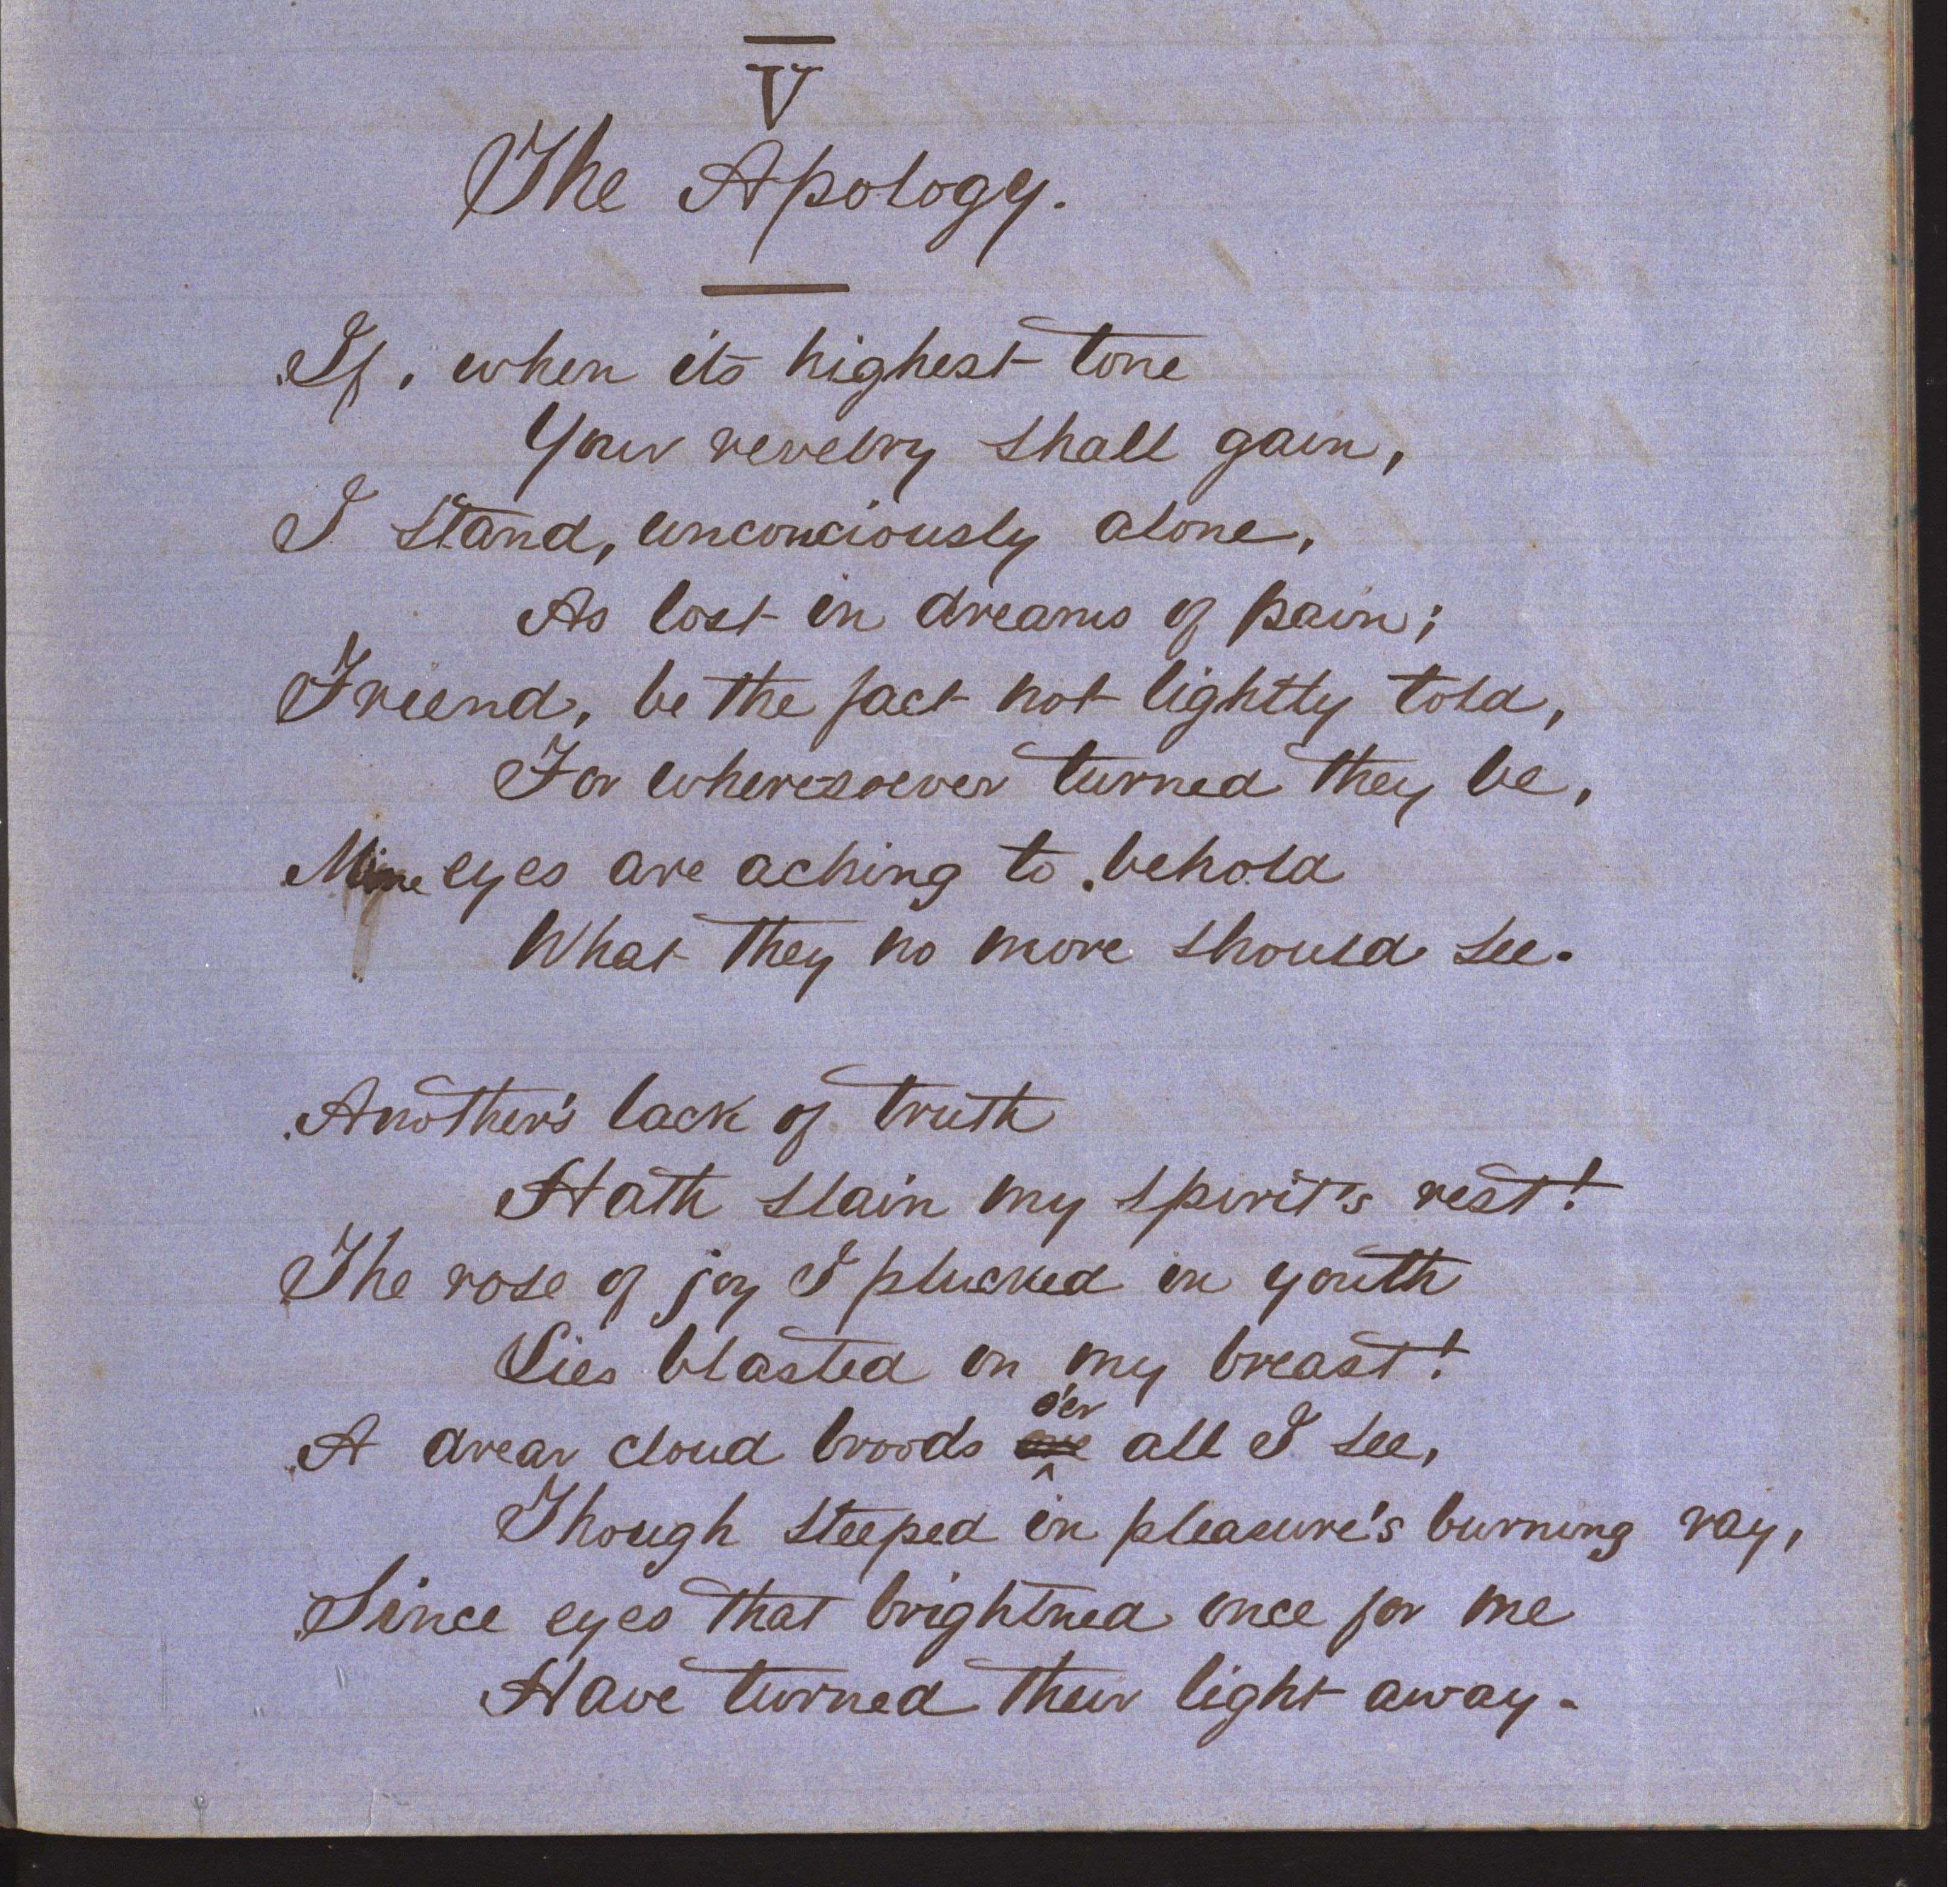 V
The Apology.
If, when its highest tone
Your revelry shall gain,
I stand, unconsciously alone,
As lost in dreams of pain;
Friend, be the fact not lightly told,
For wheresoever turned they be,
Mine eyes are aching to behold
What they no more should see.
Another's lack of truth
Hath slain my spirit's rest!
The rose of joy I plucked in youth
Lies blasted on my breast!
o'er
A drear cloud broods all I see,
Though steeped in pleasure's burning ray,
Since eyes that brightned once for me
Have turned their light away.